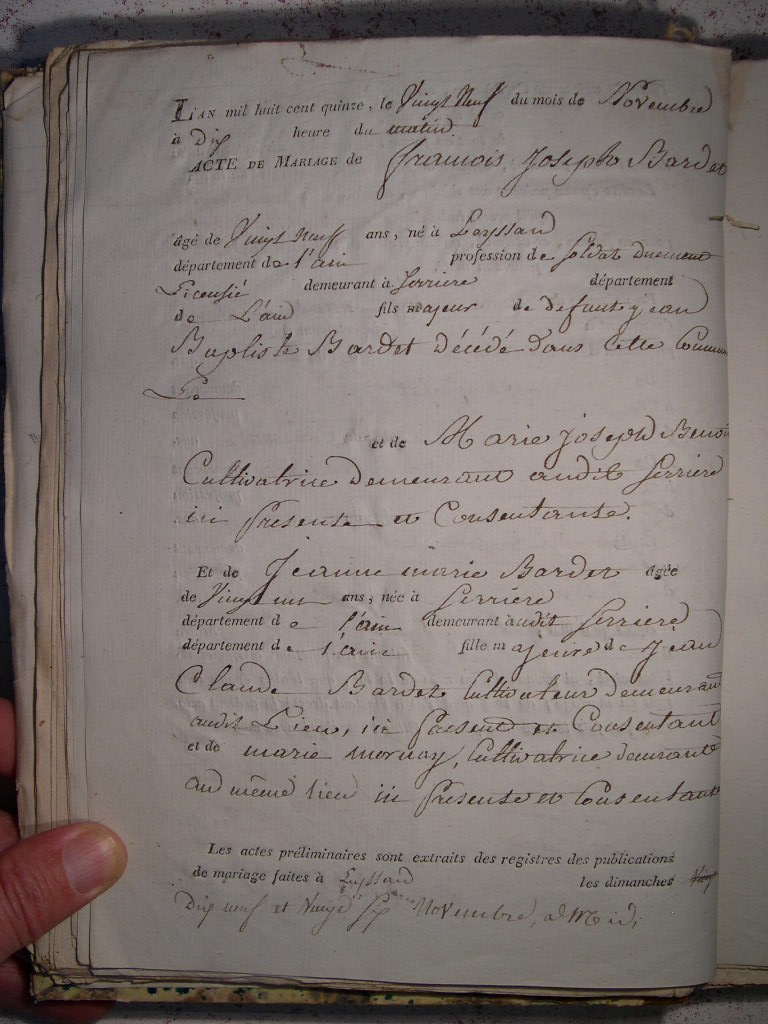 L'AN mil huit cent quinze, le Vingt Neuf du mois de Novembre
à Dix heure du matin
ACTE DE MARIAGE de francois Joseph Bardet
âgé de Vingt Neuf ans, né à Leyssard
département de l'ain profession de Soldat duement
Licensié demeurant à Serriere département
de L'ain fils majeur de defunt jean
Baptiste Bardet décédé dans Cette Commune
Le
et de Marie joseph Benoit
Cultivatrice demeurant audit Serriere
ici presente et Consentante.
Et de Jeanne marie Bardet âgée
de Vingt un ans, née à Serriere
département de l'ain demeurant audit Serriere
département de l'ain fille majeure de Jean
Claude Bardet Cultivateur demeurant
audit Lieu, ici present et Consentant
et de marie mornay, Cultivatrice demeurante
au même lieu ici presente et Consentante
Les actes préliminaires sont extraits des registres des publications
de mariage faites à Leyssard les dimanches
Dix neuf et Vingt Six Novembre, a Midi